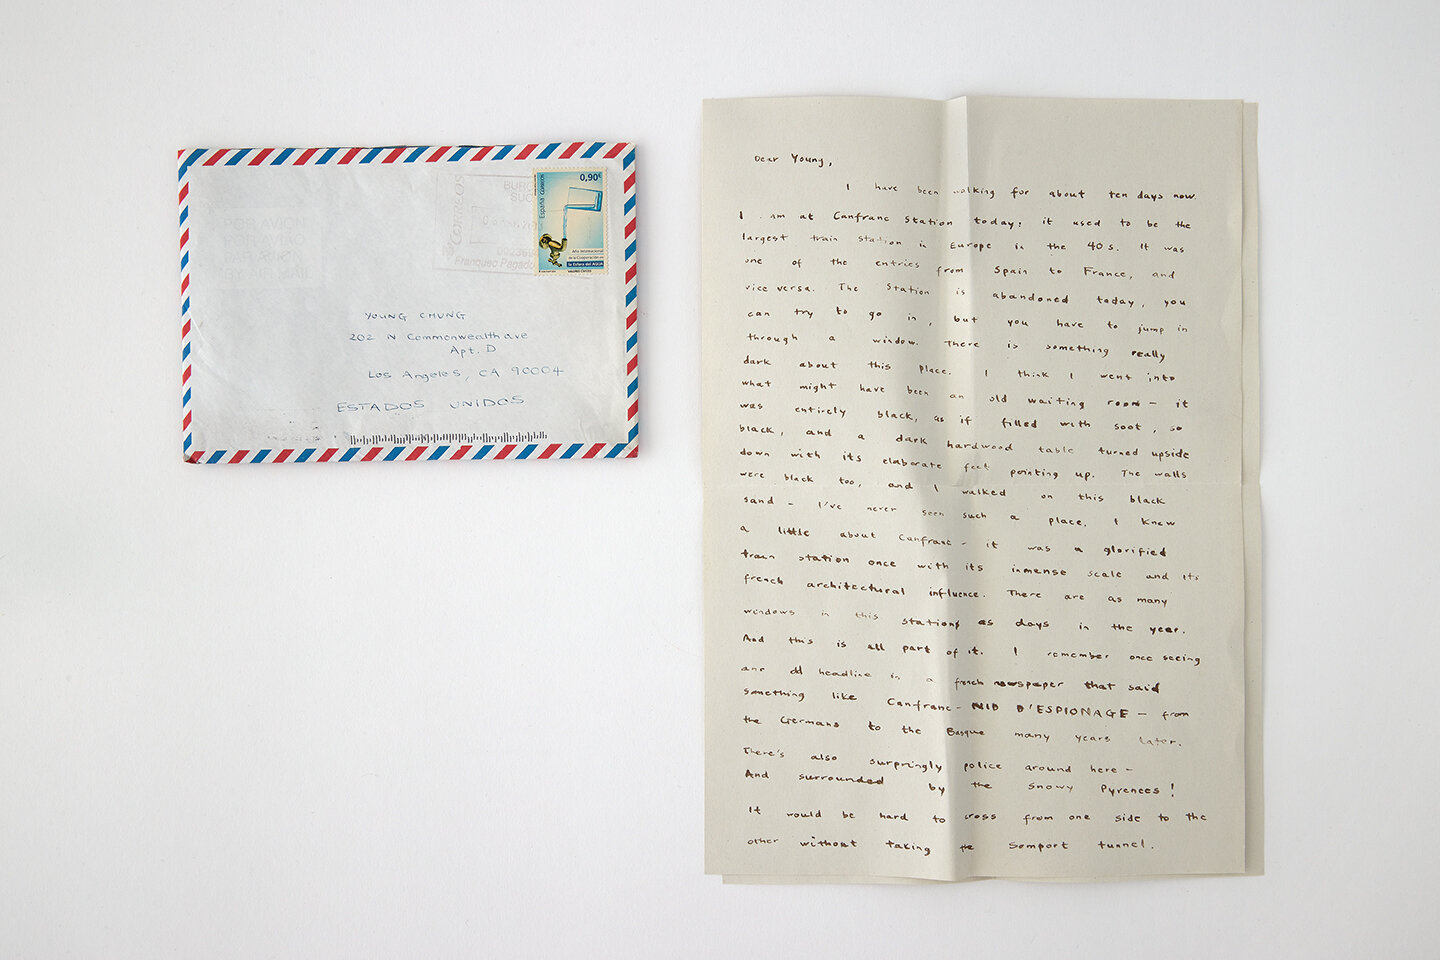 BURO
SUC
CORREOS
Franqueo Pagado
España CORREOS
0,90€
Año Internacional
de la Cooperación en
la Esfera del AGUA
YOUNG CHUNG
202 N Commonwealth ave
Apt. D
Los Angeles, CA 90004
ESTADOS UNIDOS
Dear Young,
I have been walking for about ten days now.
I am at Canfranc Station today; it used to be the
largest train station in Europe in the 40s. It was
one of the entries from Spain to France, and
vice versa. The Station is abandoned today, you
can try to go in, but you have to jump in
through a window. There is something really
dark about this place. I think I went into
what might have been an old waiting room - it
was entirely black, as if filled with soot, so
black, and a dark hardwood table turned upside
down with its elaborate feet pointing up. The walls
were black too, and I walked on this black
sand - I've never seen such a place. I knew
a little about Canfranc - it was a glorified
train station once with its inmense scale and its
french architectural influence. There are as many
windows in this station as days in the year.
And this is all part of it. I remember once seeing
and old headline in a french newspaper that said
something like Canfranc - NID D'ESPIONAGE - from
the Germans to the Basque many years later.
There's also surpringly police around here -
And surrounded by the snowy Pyrenees!
It would be hard to cross from one side to the
other without taking the Somport tunnel.